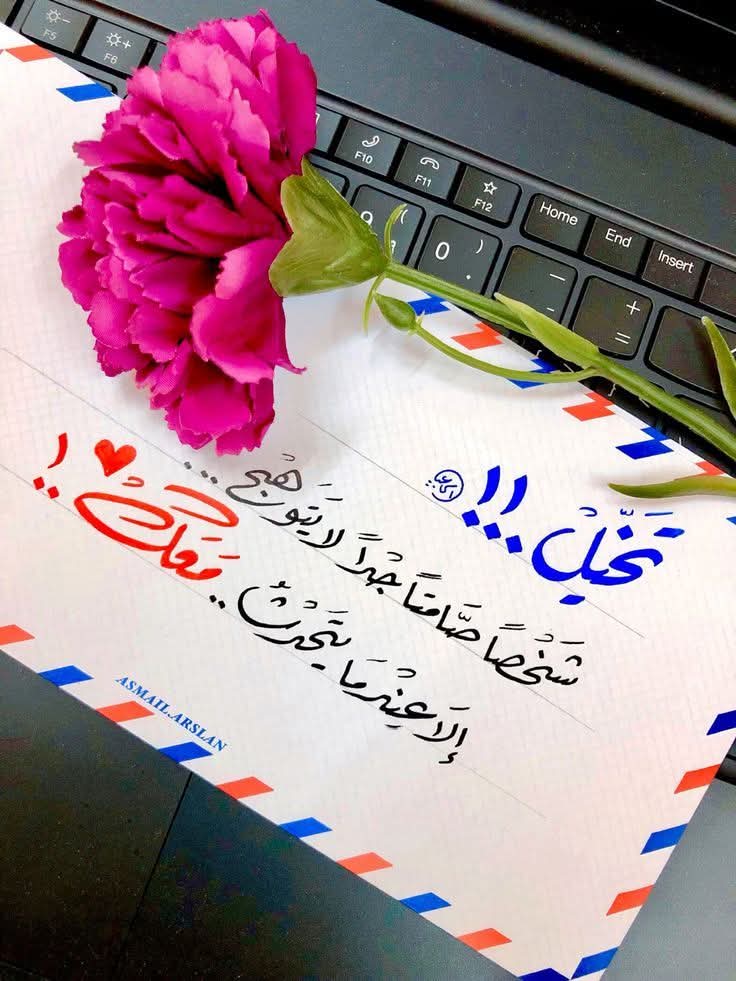 F5
F6
F10
F11
F12
Home
End
Insert
9 (
0 )
_ -
+ =
تَخَّيلْ !!..
شَخْصاً صَامتاً جْداً لا يَتَوهْج ...
إلَا عِنْدمَا يتَحْدثُ .. مَعَكْ ♥ !..
ASMAIL.ARSLAN